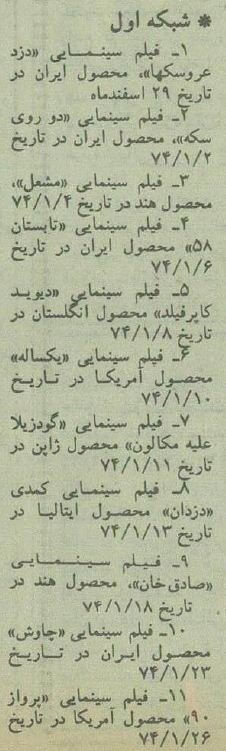 * شبکه اول
۱ـ فیلم سینمـایی «دزد
عروسکها»، محصول ایران در
تاریخ ۲۹ اسفندماه
۲ـ فیلم سینمایی «دو روی
سکه»، محصول ایران در تاریخ
۷۴/۱/۲
۳ـ فیلم سینمایی «مشعل»،
محصول هند در تاریخ ۷۴/۱/۴
۴ـ فیلم سینمایی «تابستان
۵۸» محصول ایران در تاریخ
۷۴/۱/۶
۵ـ فیلم سینمایی «دیویـد
کاپرفیلد» محصول انگلستان در
تاریخ ۷۴/۱/۸
۶ـ فیلم سینمایی «یکساله»
محصول آمریکـا در تـاریـخ
۷۴/۱/۱۰
۷ـ فیلم سینمایی «گودزیلا
علیه مکالون» محصول ژاپن در
تاریخ ۷۴/۱/۱۱
۸ـ فیلم سینمـایی کمدی
«دزدان» محصول ایتالیا در
تاریخ ۷۴/۱/۱۳
۹ـ فیـلم سیـنـمـــایـی
«صادق‌خان»، محصول هند در
تاریخ ۷۴/۱/۱۸
۱۰ـ فیلم سینمایی «چاوش»
محصول ایـران در تـــاریـخ
۷۴/۱/۲۳
۱۱ـ فیلم سینمایی «پرواز
۹۰» محصول آمریکا در تاریخ
۷۴/۱/۲۶